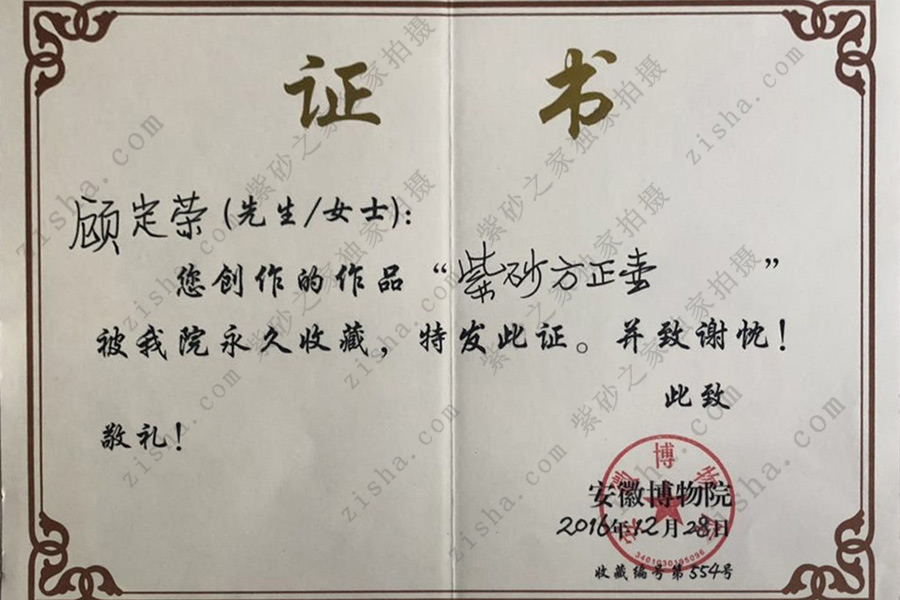 证 书
顾定荣(先生/女士):
您创作的作品“紫砂方正壶”
被我院永久收藏,特发此证。并致谢忱!
此致
敬礼!
安徽博物院
2016年12月28日
收藏编号第554号
安徽博物院
3401030195096
紫砂之家独家拍摄
zisha.com